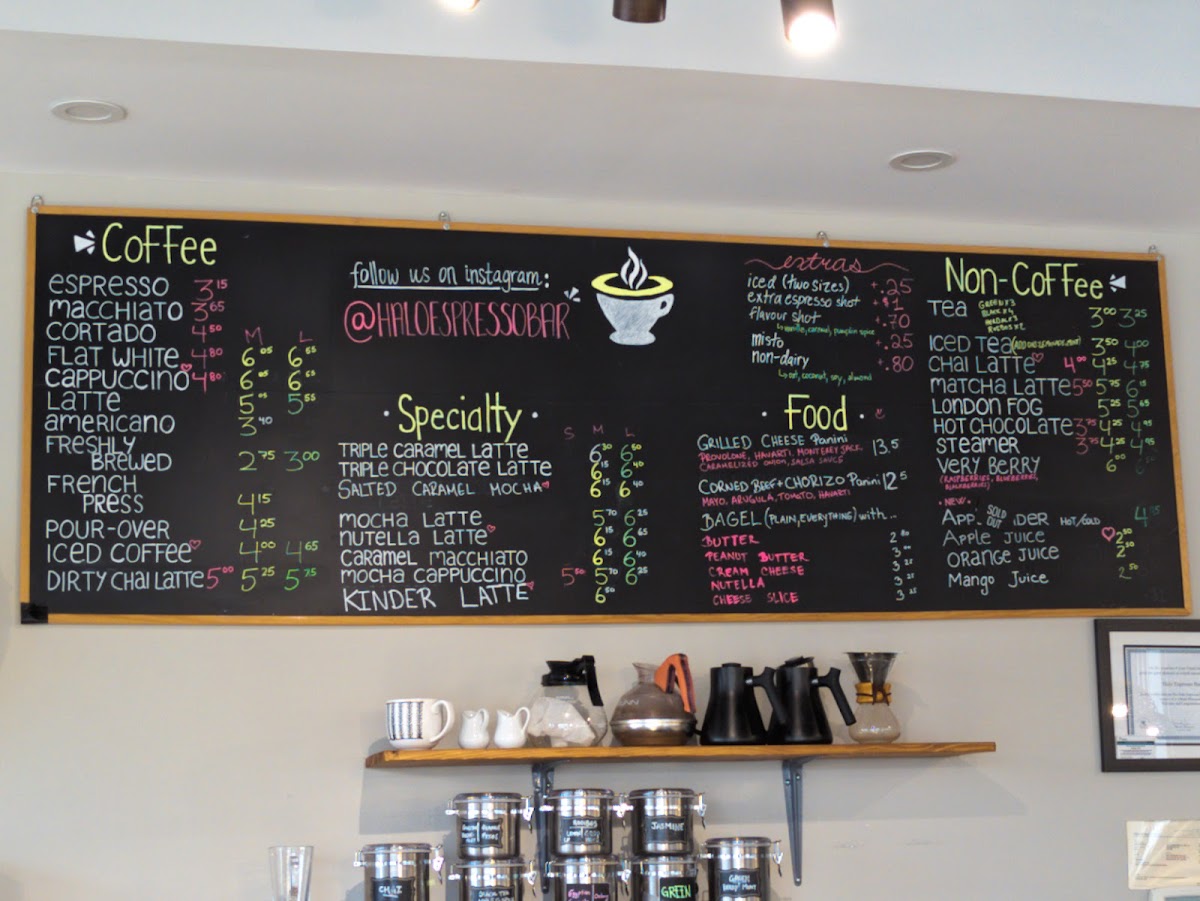 Coffee
ESPRESSO 3.15
MACCHIATO 3.65
CORTADO 4.50
M L
FLAT WHITE 4.80 6.05 6.55
CAPPUCCINO 4.80 6.05 6.65
LATTE 5.05 5.55
AMERICANO 3.40
FRESHLY
BREWED 2.75 3.00
FRENCH
PRESS 4.15
POUR-OVER 4.25
ICED COFFEE 4.00 4.65
DIRTY CHAI LATTE 5.00 5.25 5.75
follow us on instagram:
@HALOESPRESSOBAR
Specialty
S M L
TRIPLE CARAMEL LATTE 6.30 6.50
TRIPLE CHOCOLATE LATTE 6.15 6.40
SALTED CARAMEL MOCHA 6.15 6.40
MOCHA LATTE 5.70 6.25
NUTELLA LATTE 6.15 6.65
CARAMEL MACCHIATO 6.15 6.40
MOCHA CAPPUCCINO 5.50 5.70 6.25
KINDER LATTE 6.50
extras
iced (two sizes) +.25
extra espresso shot +$1
flavour shot +.70
vanilla, caramel, pumpkin spice
misto +.25
non-dairy +.80
oat, coconut, soy, almond
Food
GRILLED CHEESE Panini 13.5
PROVOLONE, HAVARTI, MONTEREY JACK,
CARAMELIZED ONION, SALSA SAUCE
CORNED BEEF + CHORIZO Panini 12.5
MAYO, ARUGULA, TOMATO, HAVARTI
BAGEL (PLAIN, EVERYTHING) with...
BUTTER 2.80
PEANUT BUTTER 3
CREAM CHEESE 3.25
NUTELLA 3.25
CHEESE SLICE 3.25
Non-Coffee
TEA 3.00 3.25
ICED TEA 3.50 4.00
CHAI LATTE 4.00 4.25 4.75
MATCHA LATTE 5.50 5.75 6.15
LONDON FOG 5.25 5.65
HOT CHOCOLATE 3.75 4.25 4.95
STEAMER 3.75 4.25 4.95
VERY BERRY 6.00
(RASPBERRIES, BLUEBERRIES,
BLACKBERRIES)
NEW
SOLD
OUT
HOT/COLD
Apple Juice 2.50
Orange Juice 2.50
Mango Juice 2.50
JASMINE
CHAI
GREEN